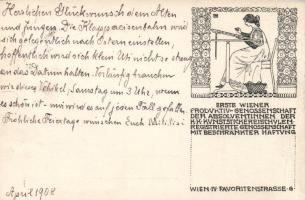 Herzlichen Glückwunsch dem Alten
und Jungen. Die Klappaeisenfahn wird
sich gelegentlich nach Ostern einstellen
hoffentlich wird sich klein Uli nicht so streng
an das Datum halten. Vorläufig brauchen
wir Samstag um 3 Uhr, wenn
es schön ist - mir wird es auf jeden Fall gefallen
Fröhliche Feiertage wünschen Euch
April 1908
ERSTE WIENER
PRODUKTIV-GENOSSENSCHAFT
DER ABSOLVENTINNEN DER
K.K. KUNSTSTICKEREISCHULEN
REGISTRIERTE GENOSSENSCHAFT
MIT BESCHRÄNKTER HAFTUNG
WIEN·IV·FAVORITENSTRASSE·6·